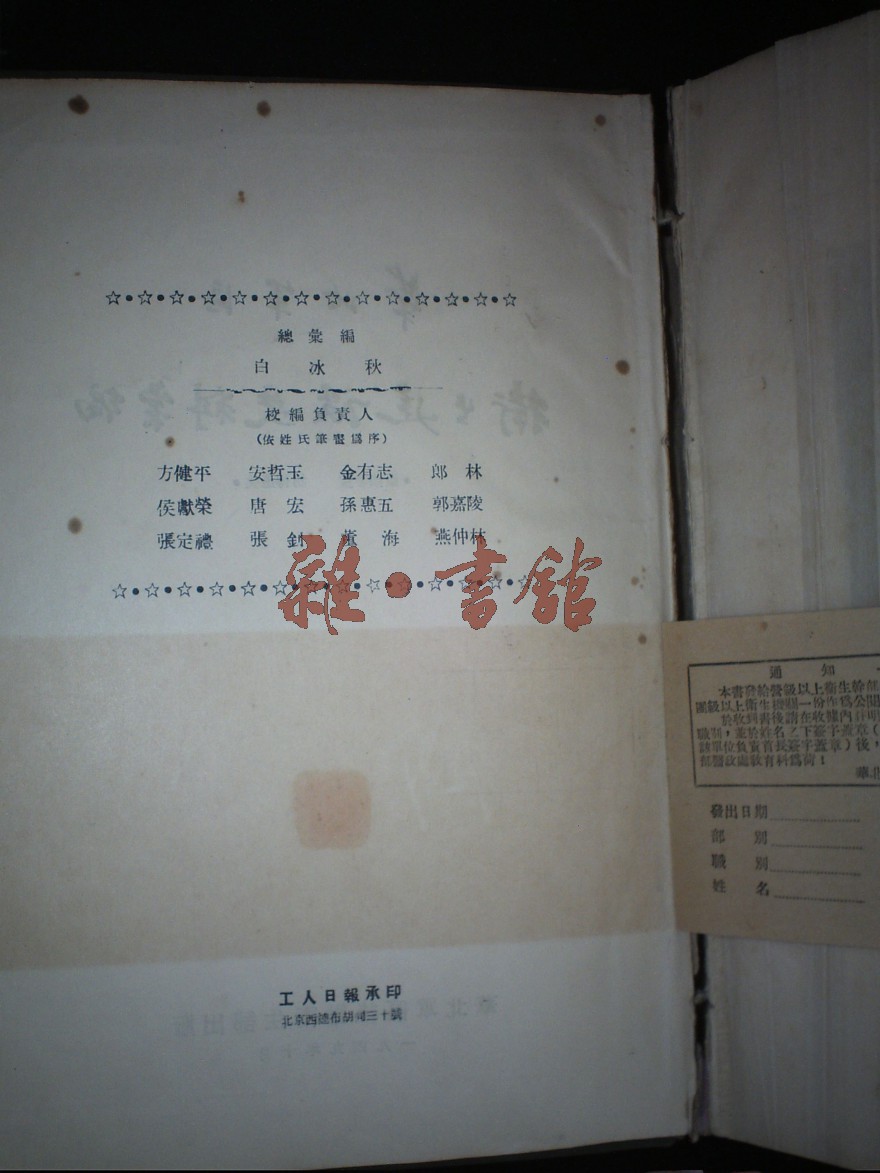 總彙編
白冰秋
校編負責人
(依姓氏筆畫爲序)
方健平 安哲玉 金有志 郎林
侯獻榮 唐宏 孫惠五 郭嘉陵
張定禮 張釗 董海 燕仲林
雜·書館
工人日報承印
北京西總布胡同三十號
通知
本書發給營級以上衞生幹部
團級以上衞生機關一份作爲公開
於收到書後請在收據內註明
職別,並於姓名之下簽字蓋章(
該單位負責首長簽字蓋章)後,
部醫政處敎育科爲荷!
華北
發出日期
部別
職別
姓名